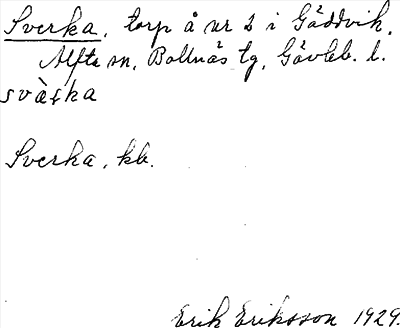 Sverka, torp å nr 2 i Gäddvik,
Alfta sn, Bollnäs tg, Gävleb. l.
svàʂka
Sverka, kb.
Erik Eriksson 1929.